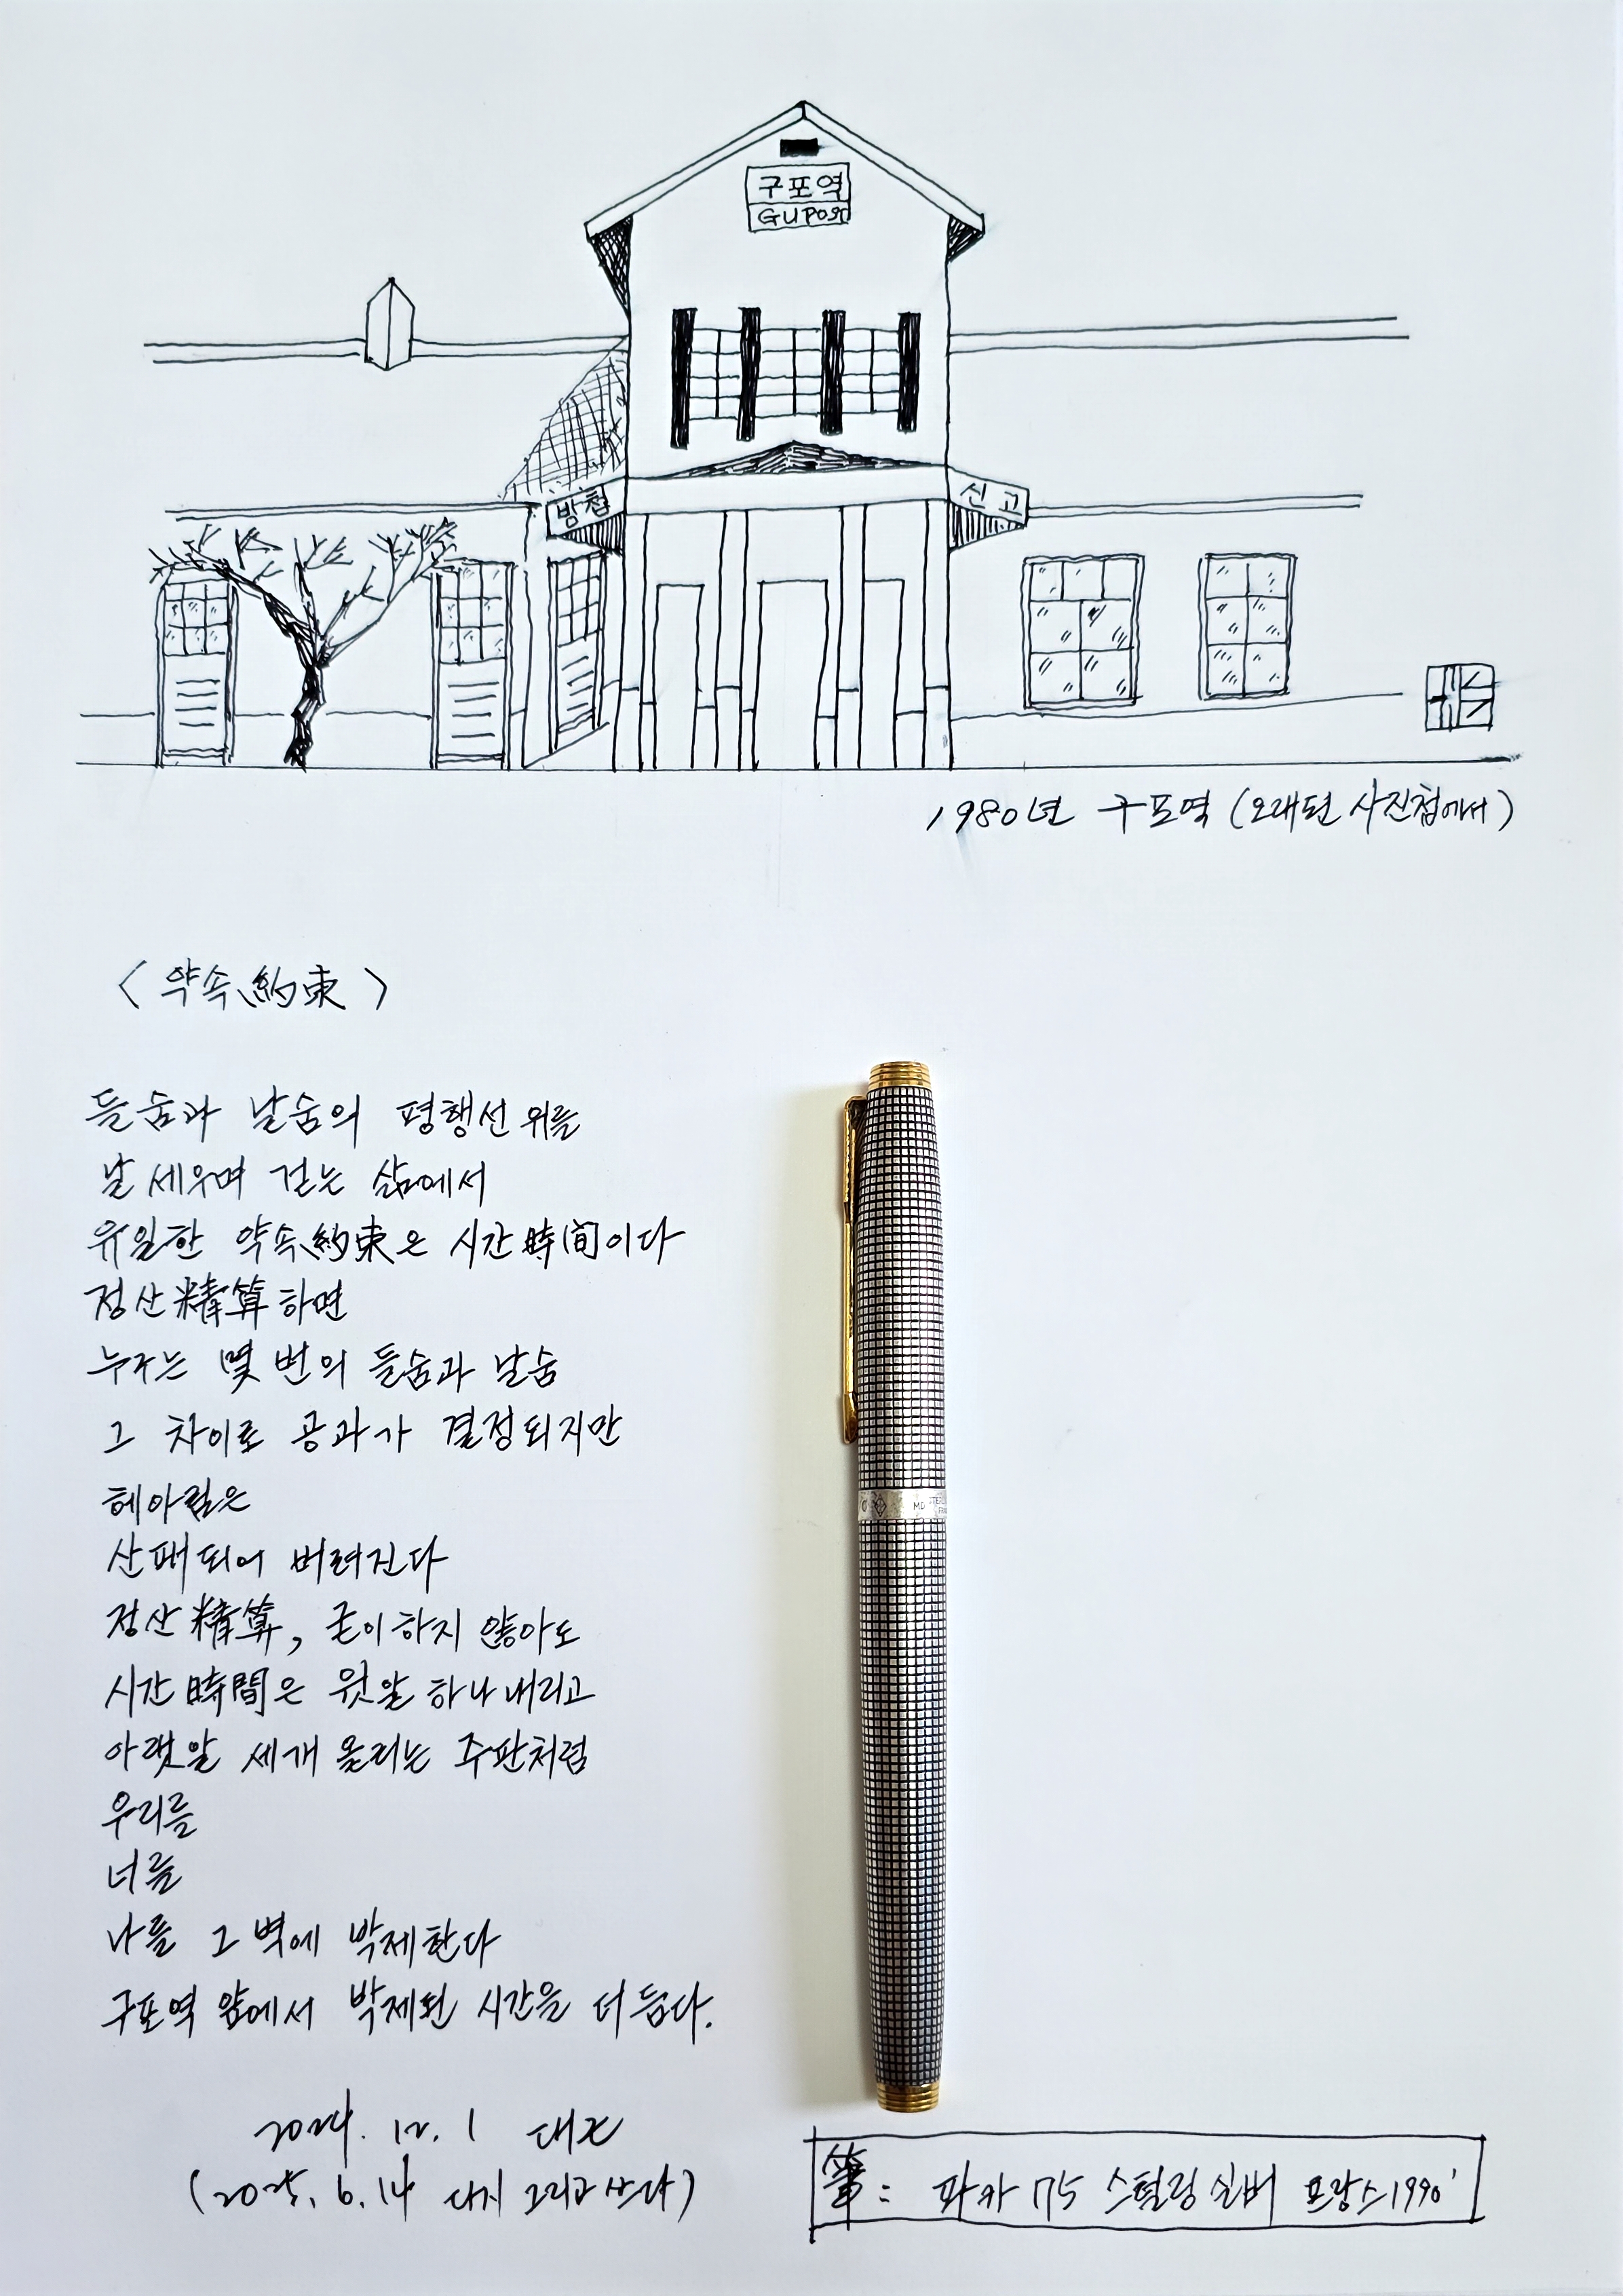 구포역
GUPO역
방첩
신고
1980년 구포역 (오래된 사진첩에서)
< 약속約束 >
들숨과 날숨의 평행선 위를
날 세우며 걷는 삶에서
유일한 약속約束은 시간時間이다
정산精算하면
누구는 몇 번의 들숨과 날숨
그 차이로 공과가 결정되지만
헤아림은
산패되어 버려진다
정산精算, 굳이 하지 않아도
시간時間은 윗알 하나 내리고
아랫알 세개 올리는 주판처럼
우리를
너를
나를 그 벽에 박제한다
구포역 앞에서 박제된 시간을 더듬다.
2024. 12. 1
(2025. 6. 14 다시 그리고 쓰다)
筆: 파카 75 스털링 실버 프랑스 1990'